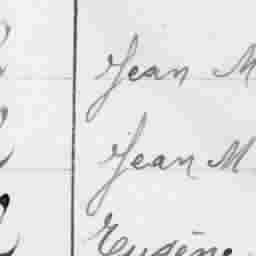 Jean M
Jean M
Eugène